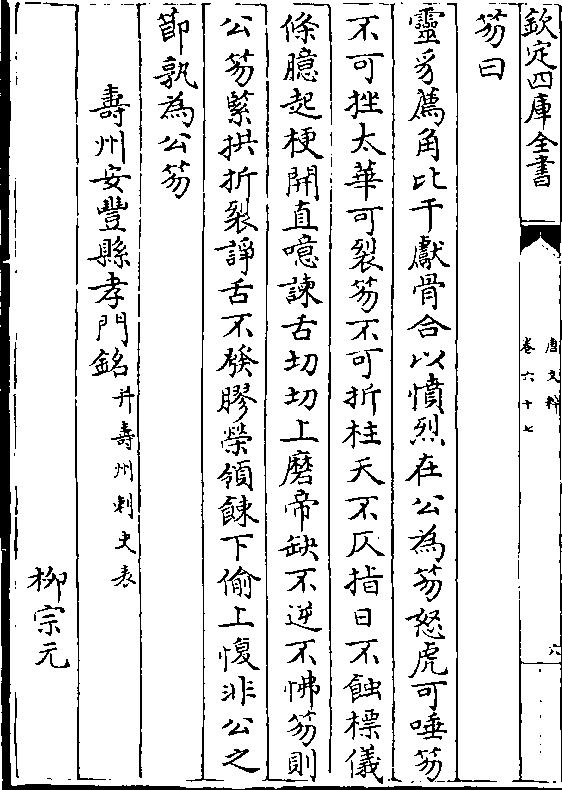 欽定四庫全書
唐文粹
卷六十七
六
笏曰
靈豸薦角比干獻骨合以憤烈在公為笏怒虎可唾笏
不可挫太華可裂笏不可折柱天不仄指日不蝕標儀
條臆起梗開直噫諫舌切切上磨帝缺不逆不怫笏則
公笏縶拱折裂諍舌不發膠榮領餗下偷上愎非公之
節孰為公笏
壽州安豐縣孝門銘并壽州刺史表
柳宗元